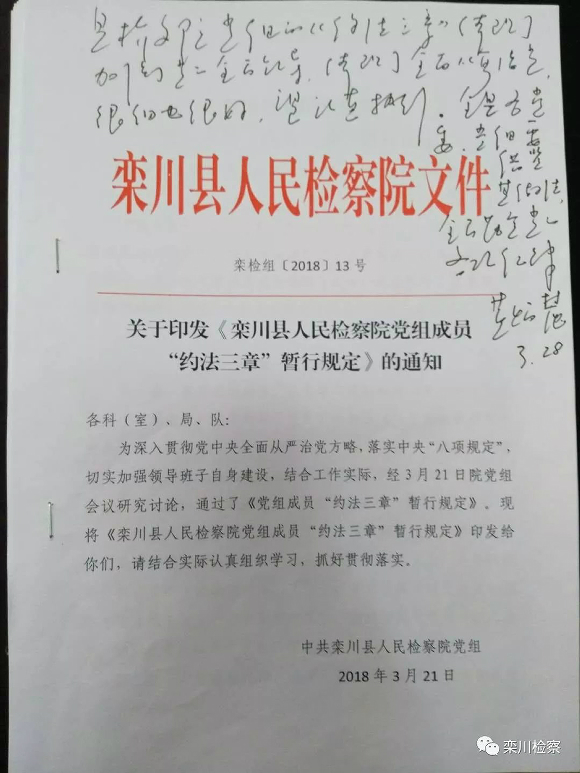 县检察院党组的“约法三章”
很细也很好，望认真执行。
栾川县人民检察院文件
栾检组〔2018〕13号
关于印发《栾川县人民检察院党组成员
“约法三章”暂行规定》的通知
3.28
各科（室）、局、队：
为深入贯彻党中央全面从严治党方略，落实中央“八项规定”，
切实加强领导班子自身建设，结合工作实际，经3月21日院党组
会议研究讨论，通过了《党组成员“约法三章”暂行规定》。现
将《栾川县人民检察院党组成员“约法三章”暂行规定》印发给
你们，请结合实际认真组织学习，抓好贯彻落实。
中共栾川县人民检察院党组
2018年3月21日
栾川检察